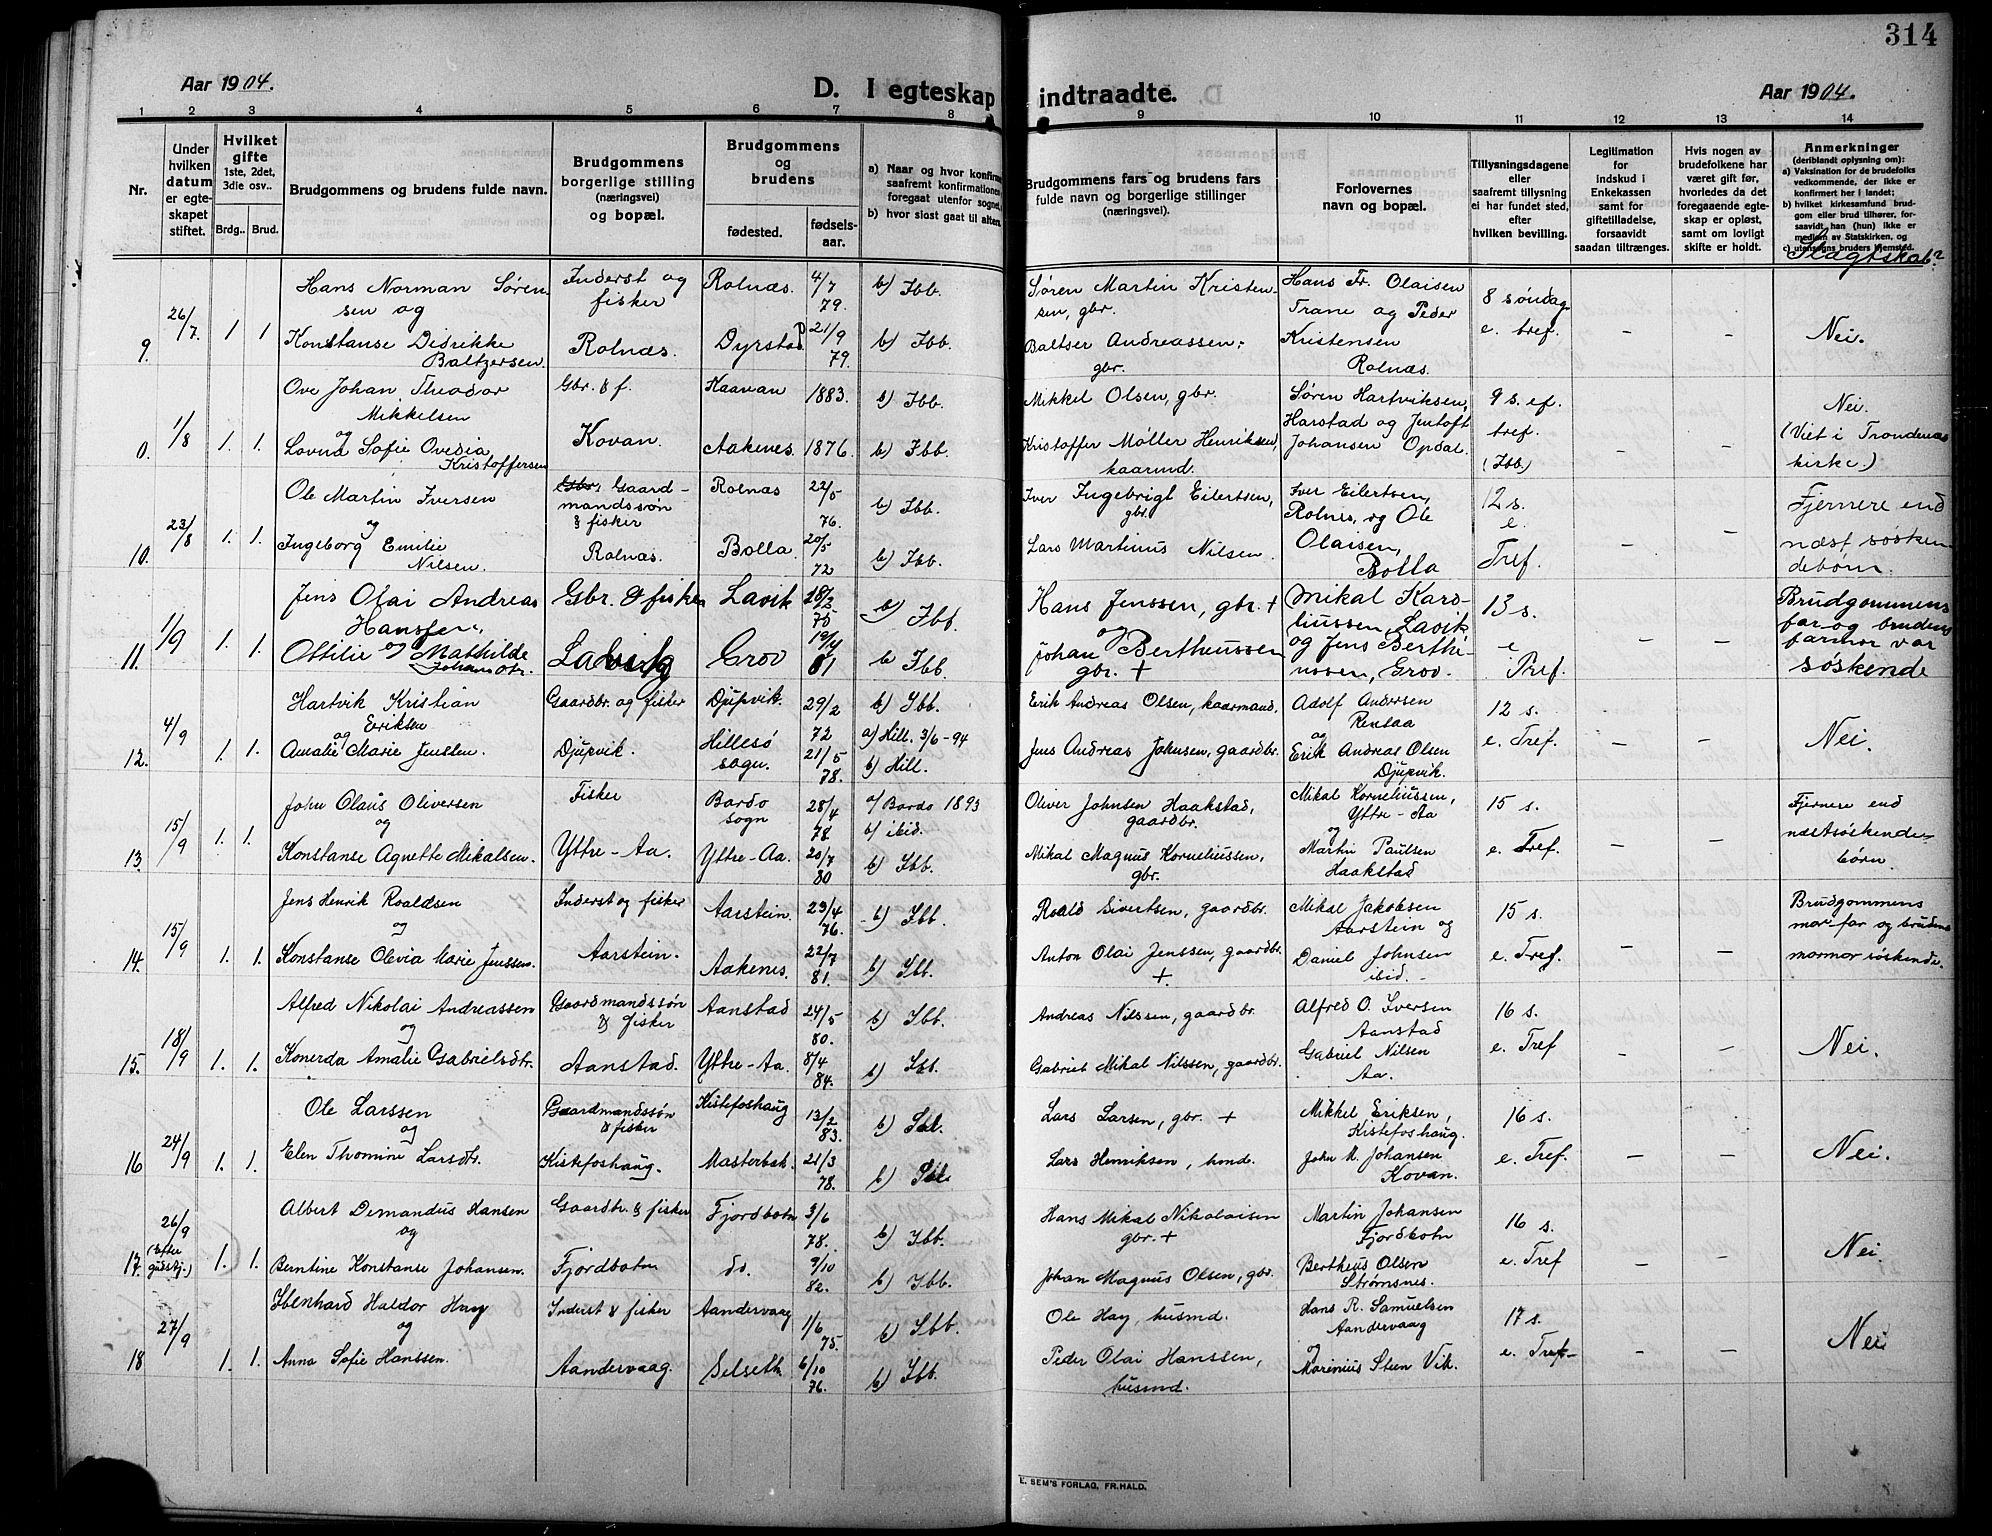 314
Aar 1904.
D. I egteskap indtraadte.
Aar 1904.
1 2 3 4 5 6 7 8 9 10 11 12 13 14
Nr.
Under hvilken datum er egteskapet stiftet.
Hvilket gifte 1ste, 2det, 3die osv..
Brdg.. Brud.
Brudgommens og brudens fulde navn.
Brudgommens borgerlige stilling (næringsvei) og bopæl.
Brudgommens og brudens
fødested. fødsels-aar.
a) Naar og hvor konfirme
saafremt konfirmationen
foregaat utenfor sognet,
b) hvor sidst gaat til alters.
Brudgommens fars og brudens fars
fulde navn og borgerlige stillinger
(næringsvei).
Forlovernes
navn og bopæl.
Tillysningsdagene
eller
saafremt tillysning
ei har fundet sted,
efter
hvilken bevilling.
Legitimation
for
indskud i
Enkekassen
samt for
giftetilladelse,
forsaavidt
saadan tiltrænges.
Hvis nogen av
brudefolkene har
været gift før,
hvorledes da det
foregaaende egte-
skap er opløst,
samt om lovligt
skifte er holdt.
Anmerkninger
(deriblandt oplysning om):
a) Vaksination for de brudefolks
vedkommende, der ikke er
konfirmert her i landet;
b) hvilket kirkesamfund brud-
gom eller brud tilhører, for-
saavidt han (hun) ikke er
medlem av Statskirken, og
c) utensogns bruders hjemsted.
Slagtskab?
9. 26/7 1 1
Hans Norman Søren-
sen og
Konstanse Didrikke
Baltzersen.
Inderst og
fisker
Rolnæs.
Rolnæs. 4/7 79. b) Ibb.
Dyrstad 21/9 79. b) Ibb.
Søren Martin Kristen-
sen, gbr.
Baltser Andreassen,
gbr.
Hans Fr. Olaisen
Trane og Peder
Kristensen
Rolnæs.
8 søndag
e. tref.
– –
Nei.
0. 1/8 1. 1.
Ove Johan Theodor
Mikkelsen
og
Lovna Sofie Ovedia
Kristoffersen
Gbr. & f.
Kovan.
Haavan 1883. b) Ibb.
Aakenes. 1876. b) Ibb.
Mikkel Olsen, gbr.
Kristoffer Møller Henriksen,
kaarmd.
Søren Hartviksen,
Harstad og Jentoft
Johansen Opdal.
9 s. ef.
tref.
(Ibb)
– –
Nei.
(Viet i Trondenæs
kirke.)
10. 23/8 1. 1.
Ole Martin Iversen
og
Ingeborg Emilie
Nilsen.
Gbr. Gaard-
mandssøn
& fisker
Rolnæs.
Rolnæs 22/5 76. b) Ibb.
Bolla. 20/5 72 b) Ibb.
Iver Ingebrigt Eilertsen,
gbr.
Lars Martinus Nilsen.
Iver Eilertsen,
Rolnes, og Ole
Olaisen,
Bolla
12 s.
e.
Tref.
– –
Fjernere end
næstsøsken-
debørn.
11. 1/9 1. 1.
Jens Olai Andreas
Hanssen,
og
Ottilie Mathilde
Johansdtr.
Gbr. & fisker
Lavik
Lavik 28/2 75 b) Ibb.
Grov 19/4 81 b Ibb.
Hans Jenssen, gbr. +
og
Johan Bertheussen
gbr. +
Mikal Kor-
liussen, Lavik
og Jens Berthe-
ussen, Grov.
13 s.
e
Tref.
– –
Brudgommens
far og brudens
farmor var
søskende
12. 4/9 1. 1.
Hartvik Kristian
Eriksen
og
Amalie Marie Jenssen.
Gaardbr. og fisker
Djupvik.
Djupvik. 29/2 72 b) Ibb.
Hillesø
sogn. 21/5 78. a) Hill. 3/6-94
b) Hill.
Erik Andreas Olsen, kaarmand,
Jens Andreas Johnsen, gaardbr.
Adolf Andersen
Renlaa
og
Erik Andreas Olsen
Djupvik.
12 s.
e. Tref.
– –
Nei.
13. 15/9 1. 1.
John Claus Oliversen
og
Konstanse Agnette Mikalsen.
Fisker
Yttre-Aa.
Bardo
sogn 28/4 78. a) Bardo 1893
b) ibid.
Yttre-Aa. 20/7 80 b) Ibb.
Oliver Johnsen Haakstad,
gaardbr.
Mikal Magnus Korneliussen,
gbr.
Mikal Korneliussen,
Yttre-Aa
og
Martin Paulsen
Haakstad
15 s.
e. Tref.
– –
Fjernere end
næstsøskende-
børn.
14. 15/9 1. 1.
Jens Henrik Roaldsen
og
Konstanse Olevia Marie Jenssen.
Inderst og fisker
Aarstein.
Aarstein. 23/4 76. b) Ibb.
Aakenes. 22/7 81. b) Ibb.
Roald Sivertsen, gaardbr.
Anton Olai Jenssen, gaardbr.
+
Mikal Jakobsen
Aarstein og
Daniel Johnsen
ibid
15 s.
e. Tref.
– –
Brudgommens
morfar og brudens
mormor søskende.
15. 18/9 1. 1.
Alfred Nikolai Andreassen
og
Konerda Amalie Gabrielsdtr.
Gaardmandssøn
& fisker
Aanstad.
Aanstad 24/5 80. b) Ibb.
Yttre-Aa. 8/4 84. b) Ibb.
Andreas Nilssen, gaardbr.
Gabriel Mikal Nilssen, gaardbr.
Alfred O. Iversen
Aanstad
Gabriel Nilsen
Aa.
16 s.
e. Tref
– –
Nei.
16 24/9 1. 1.
Ole Larssen
og
Elen Thomine Larsdtr.
Gaardmandssøn
& fisker
Kistefoshaug.
Kistefoshaug 13/2 83. b) Sal.
Masterbak. 21/3 78. b) Sal.
Lars Larsen, gbr. +
Lars Henriksen, hmd.
Mikkel Eriksen,
Kistefoshaug.
John M. Johansen
Kovan.
16 s.
e. Tref.
– –
Nei.
17. 26/9 (Efter gudstj.) 1. 1.
Albert Demandus Hansen
og
Berntine Konstanse Johansen.
Gaardbr. & fisker
Fjordbotn
Fjordbotn 3/6 78. b) Ibb.
do. 9/10 82. b) Ibb.
Hans Mikal Nikolaisen
gbr. +
Johan Magnus Olsen, gbr.
Martin Johansen
Fjordbotn
Bertheus Olsen
Strømsnes.
16 s.
e. Tref
– –
Nei
18 27/9 1. 1.
Ibenhard Haldor Hay
og
Anna Sofie Hanssen.
Inderst & fisker
Aandervaag.
Aandervaag 1/6 75. b) Ibb.
Selseth 6/10 76. b) Ibb.
Ole Hay, husmd.
Peder Olai Hanssen,
husmd.
Hans R. Samuelsen
Aandervaag
og
Marinius Steen Vik.
17 s.
e. Tref
– –
Nei
E. SEM'S FORLAG, FR.HALD.